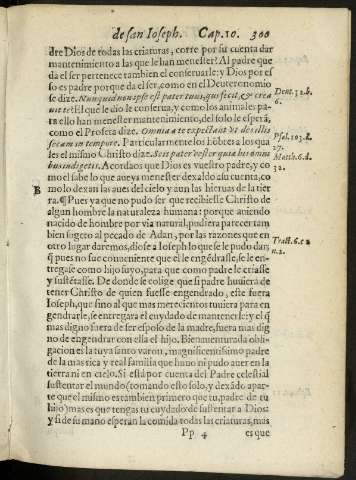 de san Ioseph. Cap. 10. 300
dre Dios de todas las criaturas, corre por su cuenta dar
mantenimiento a las que le han menester! Al padre que
da el ser pertenece tambien el conseruarle: y Dios por es
so es padre porque da el ser, como en el Deuteronomio
se dize. Nunquid non ipse est pater tuus, qui fecit, & crea
uit te? El que le dio le conserua, y como los animales pa-
ra ello han menester mantenimiento, del solo le esperã,
como el Profeta dize. Omnia a te expectant vt des illis
escam in tempore. Particularmente los hõbres a los qua
les el mismo Christo dize. Scit pater vester quia his omni
bus indigetis. Acordaos que Dios es vuestro padre, y co
mo el sabe lo que aueys menester dexaldo a su cuenta, co
mo lo dexan las aues del cielo y aun las hieruas de la tie
rra. ¶ Pues ya que no pudo ser que recibiesse Christo de
algun hombre la naturaleza humana: porque auiendo
nacido de hombre por via natural, pudiera parecer tam
bien sugeto al pecado de Adan, por las razones que en
otro lugar daremos, diose a Ioseph lo que se le pudo dar;
q̃ pues no fue conueniente que el le engẽdrasse, se le en-
tregasse como hijo suyo, para que como padre le criasse
y sustẽtasse. De donde se colige que si padre huuiera de
tener Christo de quien fuesse engendrado, este fuera
Ioseph, que sino al que mas merecimientos tuuiera para en
gendrarle, se entregara el cuydado de mantenerle: y el q̃
mas digno fuera de ser esposo de la madre, fuera mas dig
no de engendrar con ella el hijo. Bienauenturada obli-
gacion es la tuya santo varon, magnificentissimo padre
de la mas rica y real familia que huuo ni pudo auer en la
tierra ni en cielo. Si està por cuenta del Padre celestial
sustentar el mundo (tomando esto solo, y dexãdo apar-
te que el mismo es tambien primero que tu, padre de tu
hijo) mas es que tengas tu cuydado de sustentar a Dios:
y si de su mano esperan la comida todas las criaturas, mas
Pp 4 es que
Deut. 32. b.
6.
Psal. 103. d.
27.
Matth. 6. d.
32.
B
Tract. 6. c 2
n. 2.